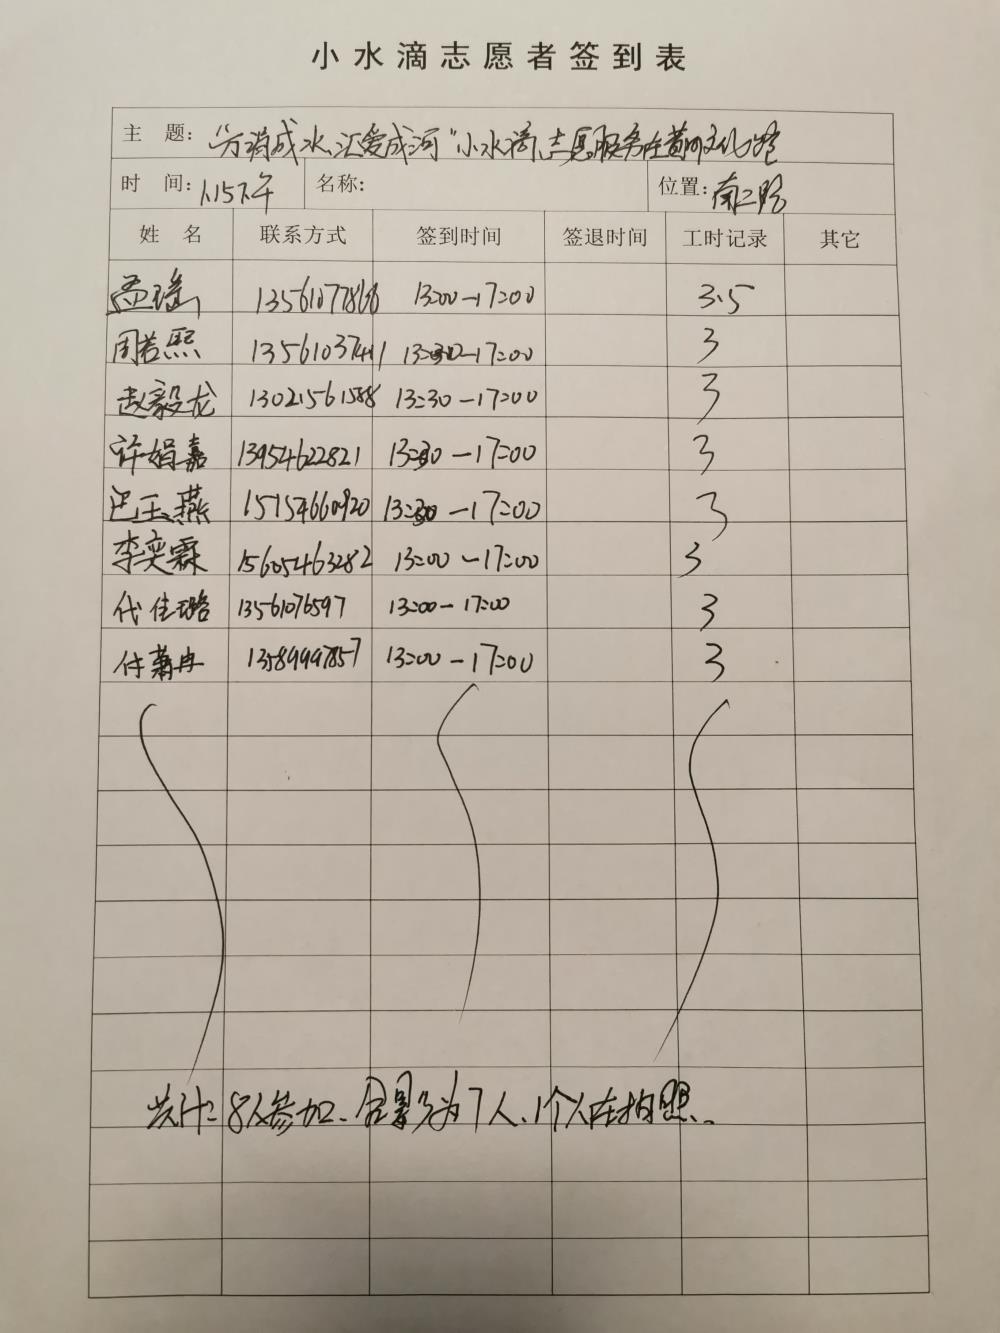 小水滴志愿者签到表
主 题: "分涓成水,汇爱成河"小水滴志愿服务在黄河文化馆
时 间: 1.15下午 名称: 位置: 南二路
姓 名 联系方式 签到时间 签退时间 工时记录 其它
孟瑶 13561077866 13:00-17:00 3.5
周若熙 13:30-17:00 3
赵毅龙 13021561588 13:30-17:00 3
许娟嘉 13954622821 13:30-17:00 3
巴玉燕 15154660920 13:30-17:00 3
李奕霖 15605463282 13:00-17:00 3
代佳璐 13561076597 13:00-17:00 3
付萧冉 13589997857 13:00-17:00 3
共计:8人参加、合影为7人、1个人在拍照.